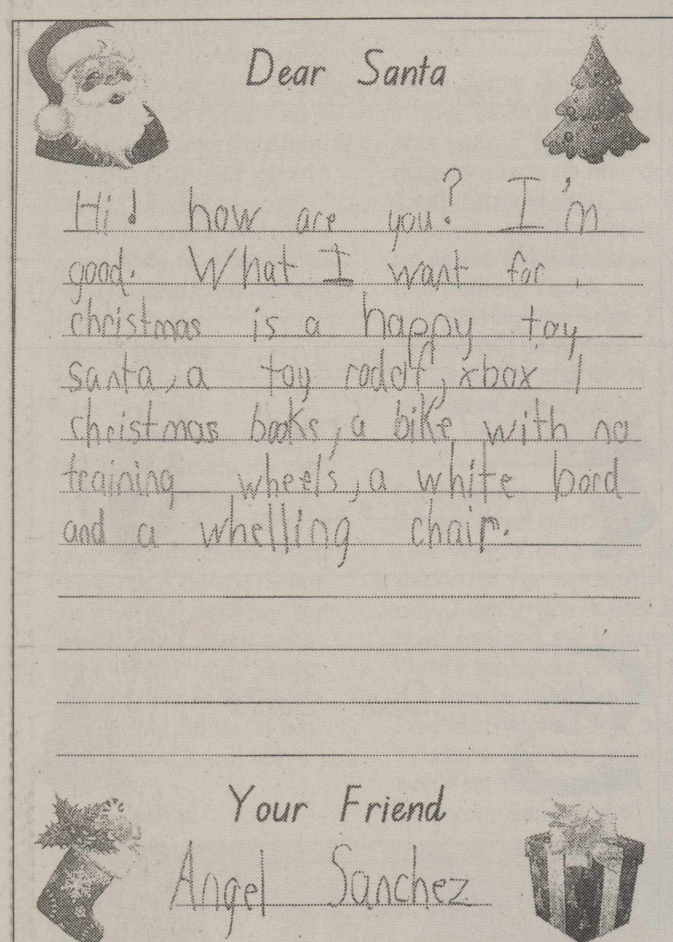 Dear Santa
Hi! how are you? I'm
good. What I want for
christmas is a happy toy
santa, a toy rodof, xbox 1
christmas books, a bike with no
training wheels, a white bord
and a whelling chair.
Your Friend
Angel Sanchez